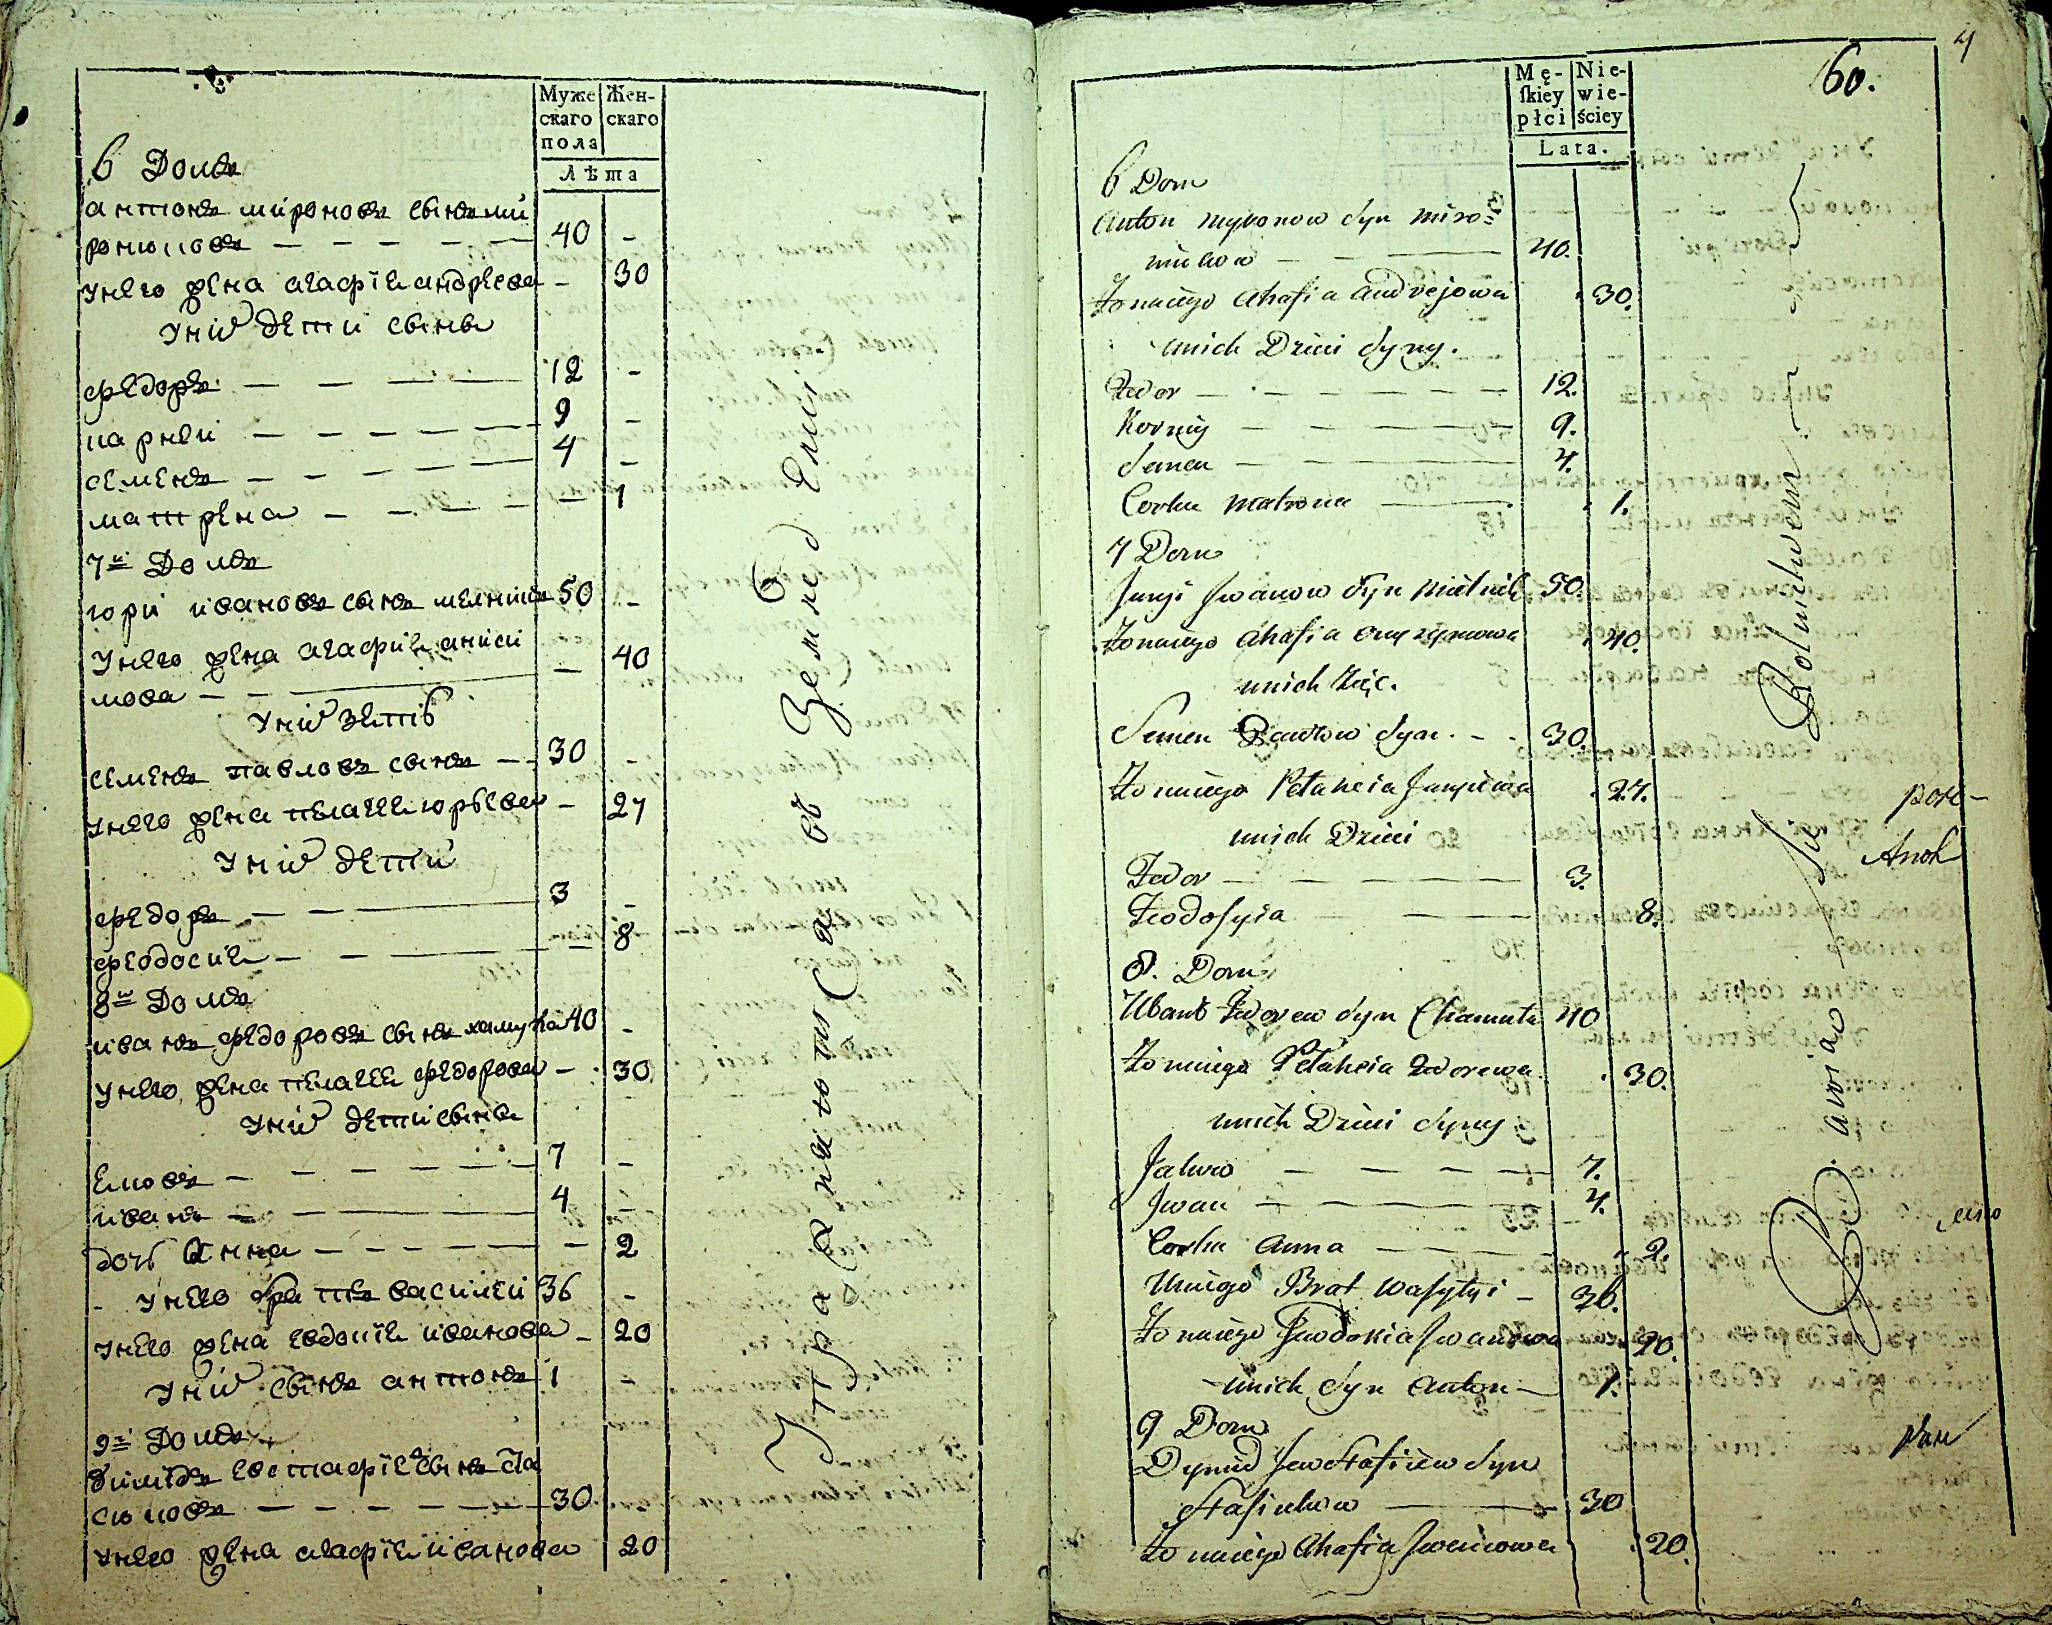 Муже
скаго
пола
Жен-
скаго
Лѣта
6 Домъ
антонъ мироновъ сынъ ми
ронюковъ — — — — — 40 -
унего жена агафія андреева - 30
унихъ дети сынъ
федоръ — — — — 12 -
карней — — — — — 9 -
семенъ — — — — — 4 -
матрена — — — — — 1
7й Домъ
юрй ивановъ сынъ мелникъ 50 -
унего жена агафия аниси
мова — — — 40
унихъ зять
семенъ павловъ сынъ — 30 -
унего жена пелагея юрьева - 27
унихъ дети
федоръ — — — 3 -
феодосия — — — — 8
8й Домъ
иванъ федоровъ сынъ хамутка 40 -
унего жена пелагея федорова — 30
унихъ дети сынъ
яковъ — — — — — 7 -
иванъ — — — 4 -
дочь Анна — — — — 2
- унего братъ василей 36 -
унего жена евдокия иванова - 20
унихъ сынъ антонъ 1 -
9й Домъ
димидъ евстафиевъ сынъ ста
сюковъ — — — — — 30
унего жена агафія иванова 20
въ Земле
4
60.
Mę-
skiey
płci
Nie-
wie-
ściey
Lata.
6 Dom
Anton Myronow Syn Miro=
niukow — — — 40.
Żonaiego Ahafia Andrejowa 30.
unich Dzieci Syny.
Fedor — — — — — 12.
Korniy — — — — 9.
Semen — — — — 4.
Corka Matrona — 1.
7 Dom
Jurgi Jwanow Syn Mielnik 50.
Żonaiego Ahafia Onyzymowa 40.
unich Zięć.
Semen Pawłow Syn. - - 30.
Żonaiego Pełaheia Jurgiewa 27.
unich Dzieci
Fedor — — — — — 3.
Teodosyia — — — 8.
8. Dom
Jwan Fedorow Syn Chamutka 40
Żonaiego Pełaheia Fedorowa 30.
unich Dzieci Syny
Jakow — — — — 7.
Jwan — — — — 4.
Corka Anna — — 2.
Uniego Brat Wasyłyi — 36.
Żonaiego Jewdokia Jwanowa 20.
unich Syn Anton — 1.
9 Dom
Dymid Jewstafiiew Syn
Stasiukow — — 30
Żonaiego Ahafia Jwanowa 20.
Rolnictwem
sie